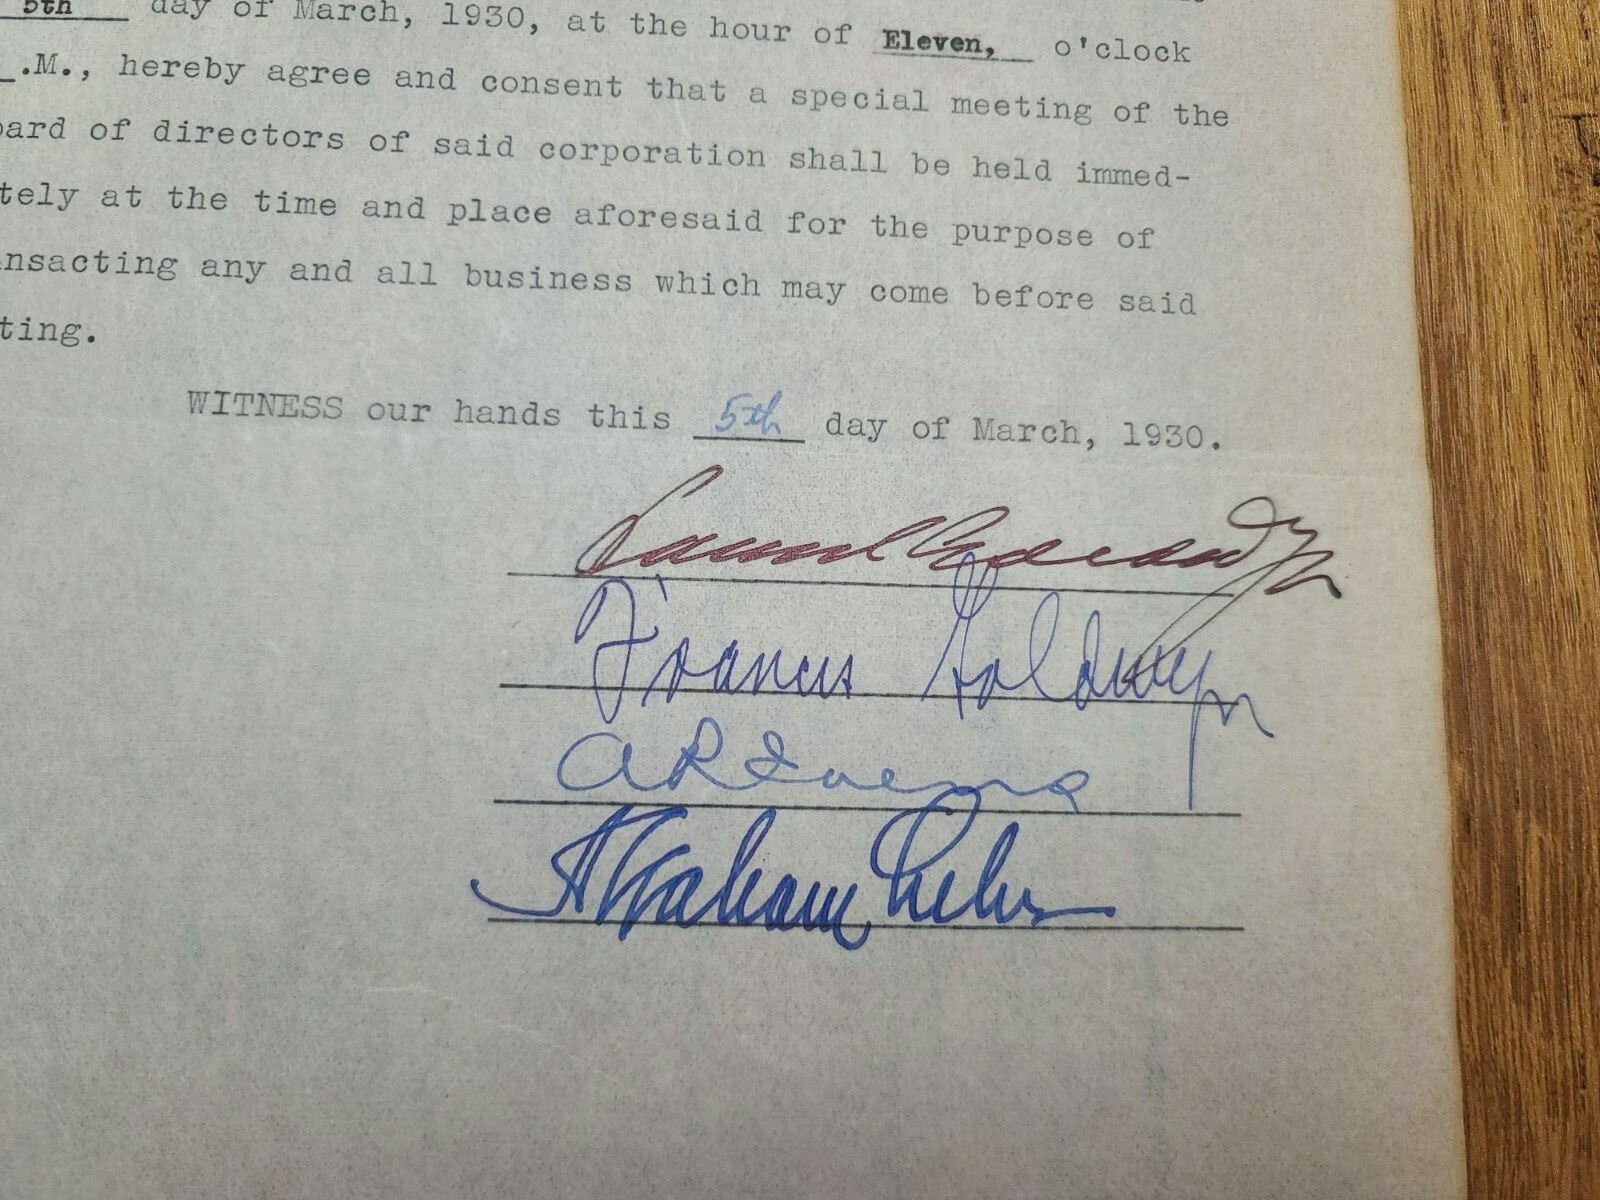 5th day of March, 1930, at the hour of Eleven, o'clock
.M., hereby agree and consent that a special meeting of the
oard of directors of said corporation shall be held immed-
tely at the time and place aforesaid for the purpose of
nsacting any and all business which may come before said
ting.
WITNESS our hands this 5th day of March, 1930.
Samuel Goldwyn
Frances Goldwyn
Abraham Lehr